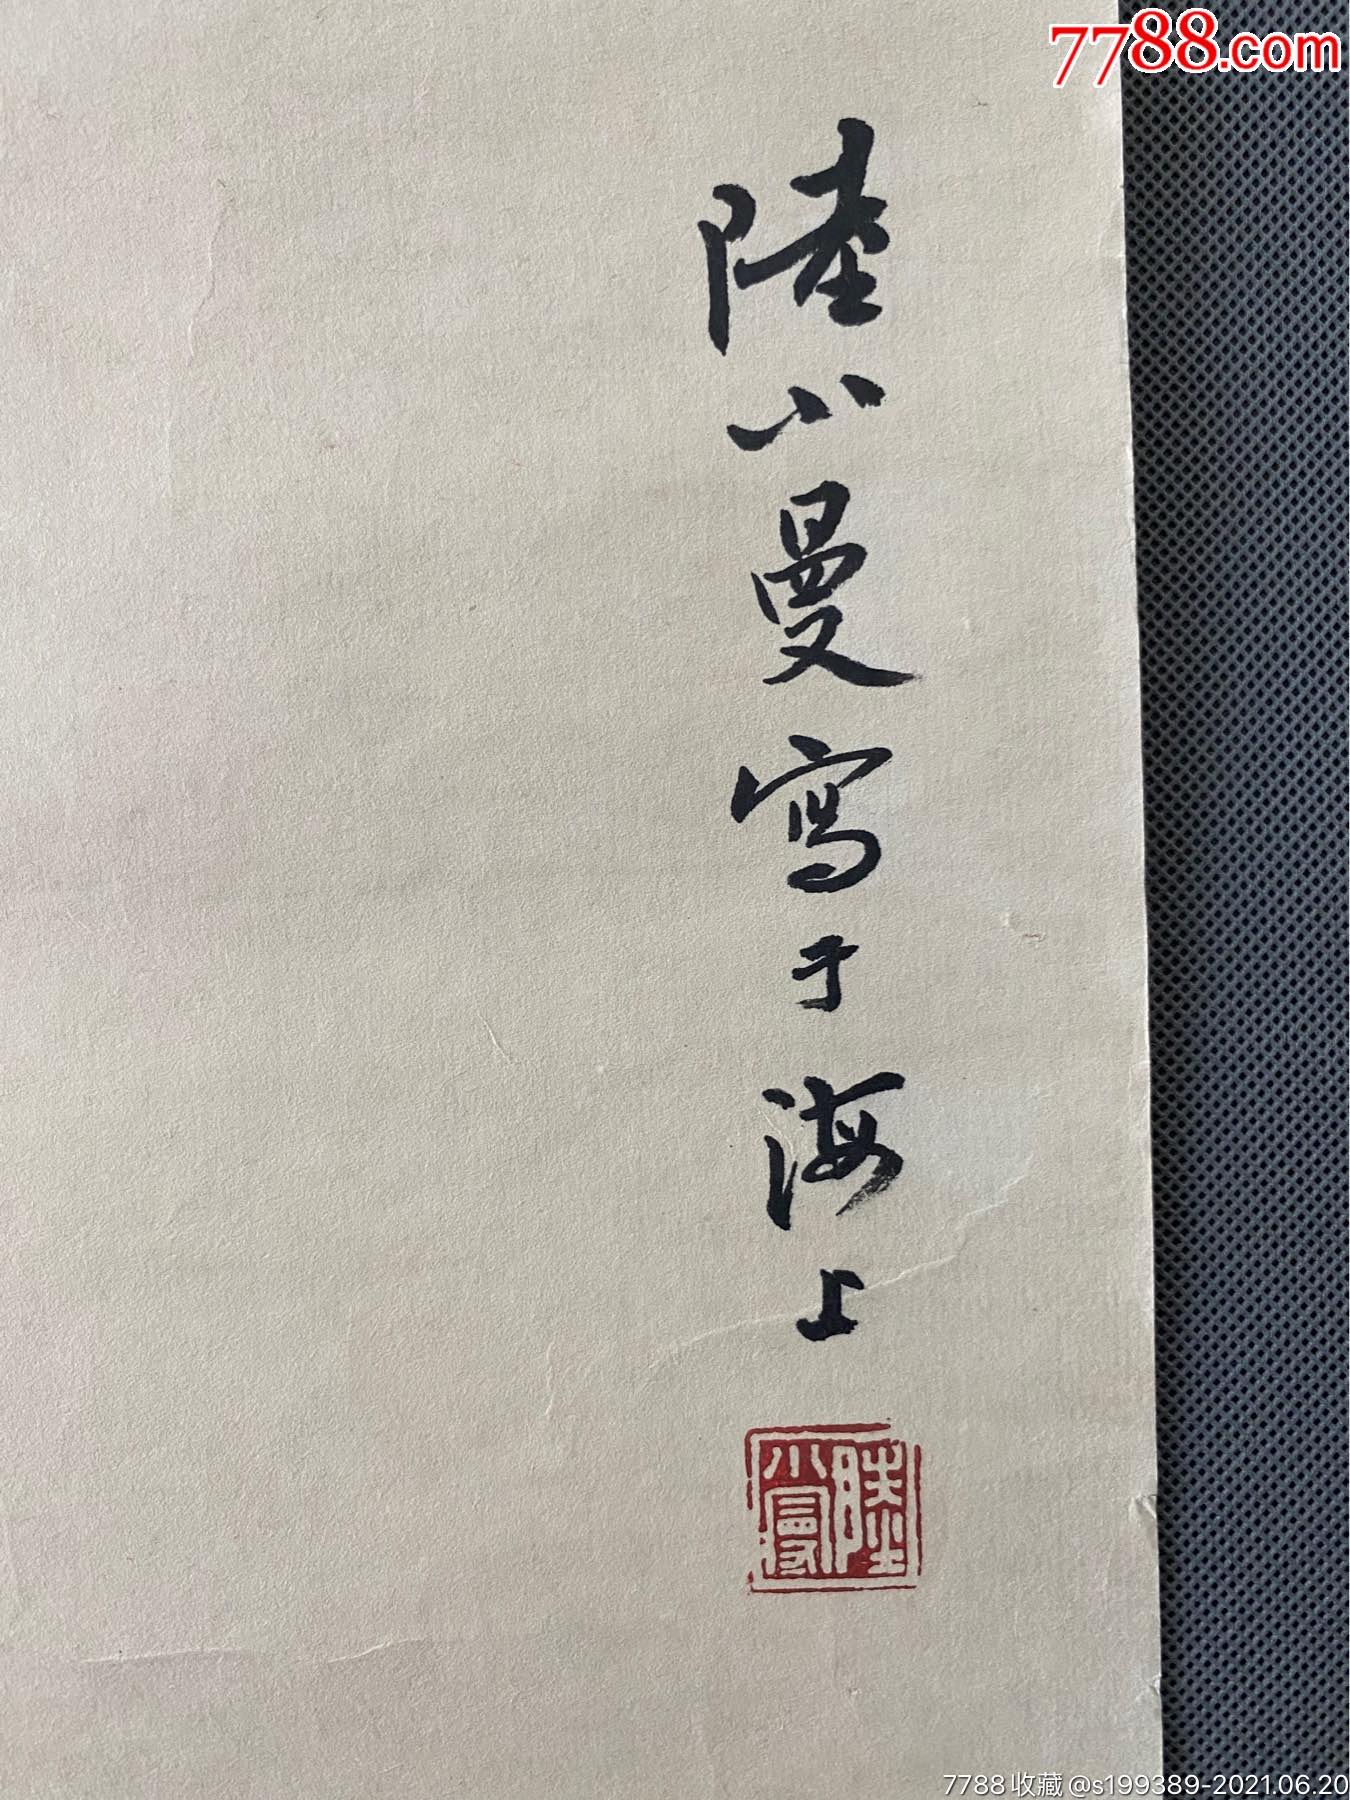 7788.com
陸小曼寫于海上
陸小曼
7788收藏@s199389-2021.06.20